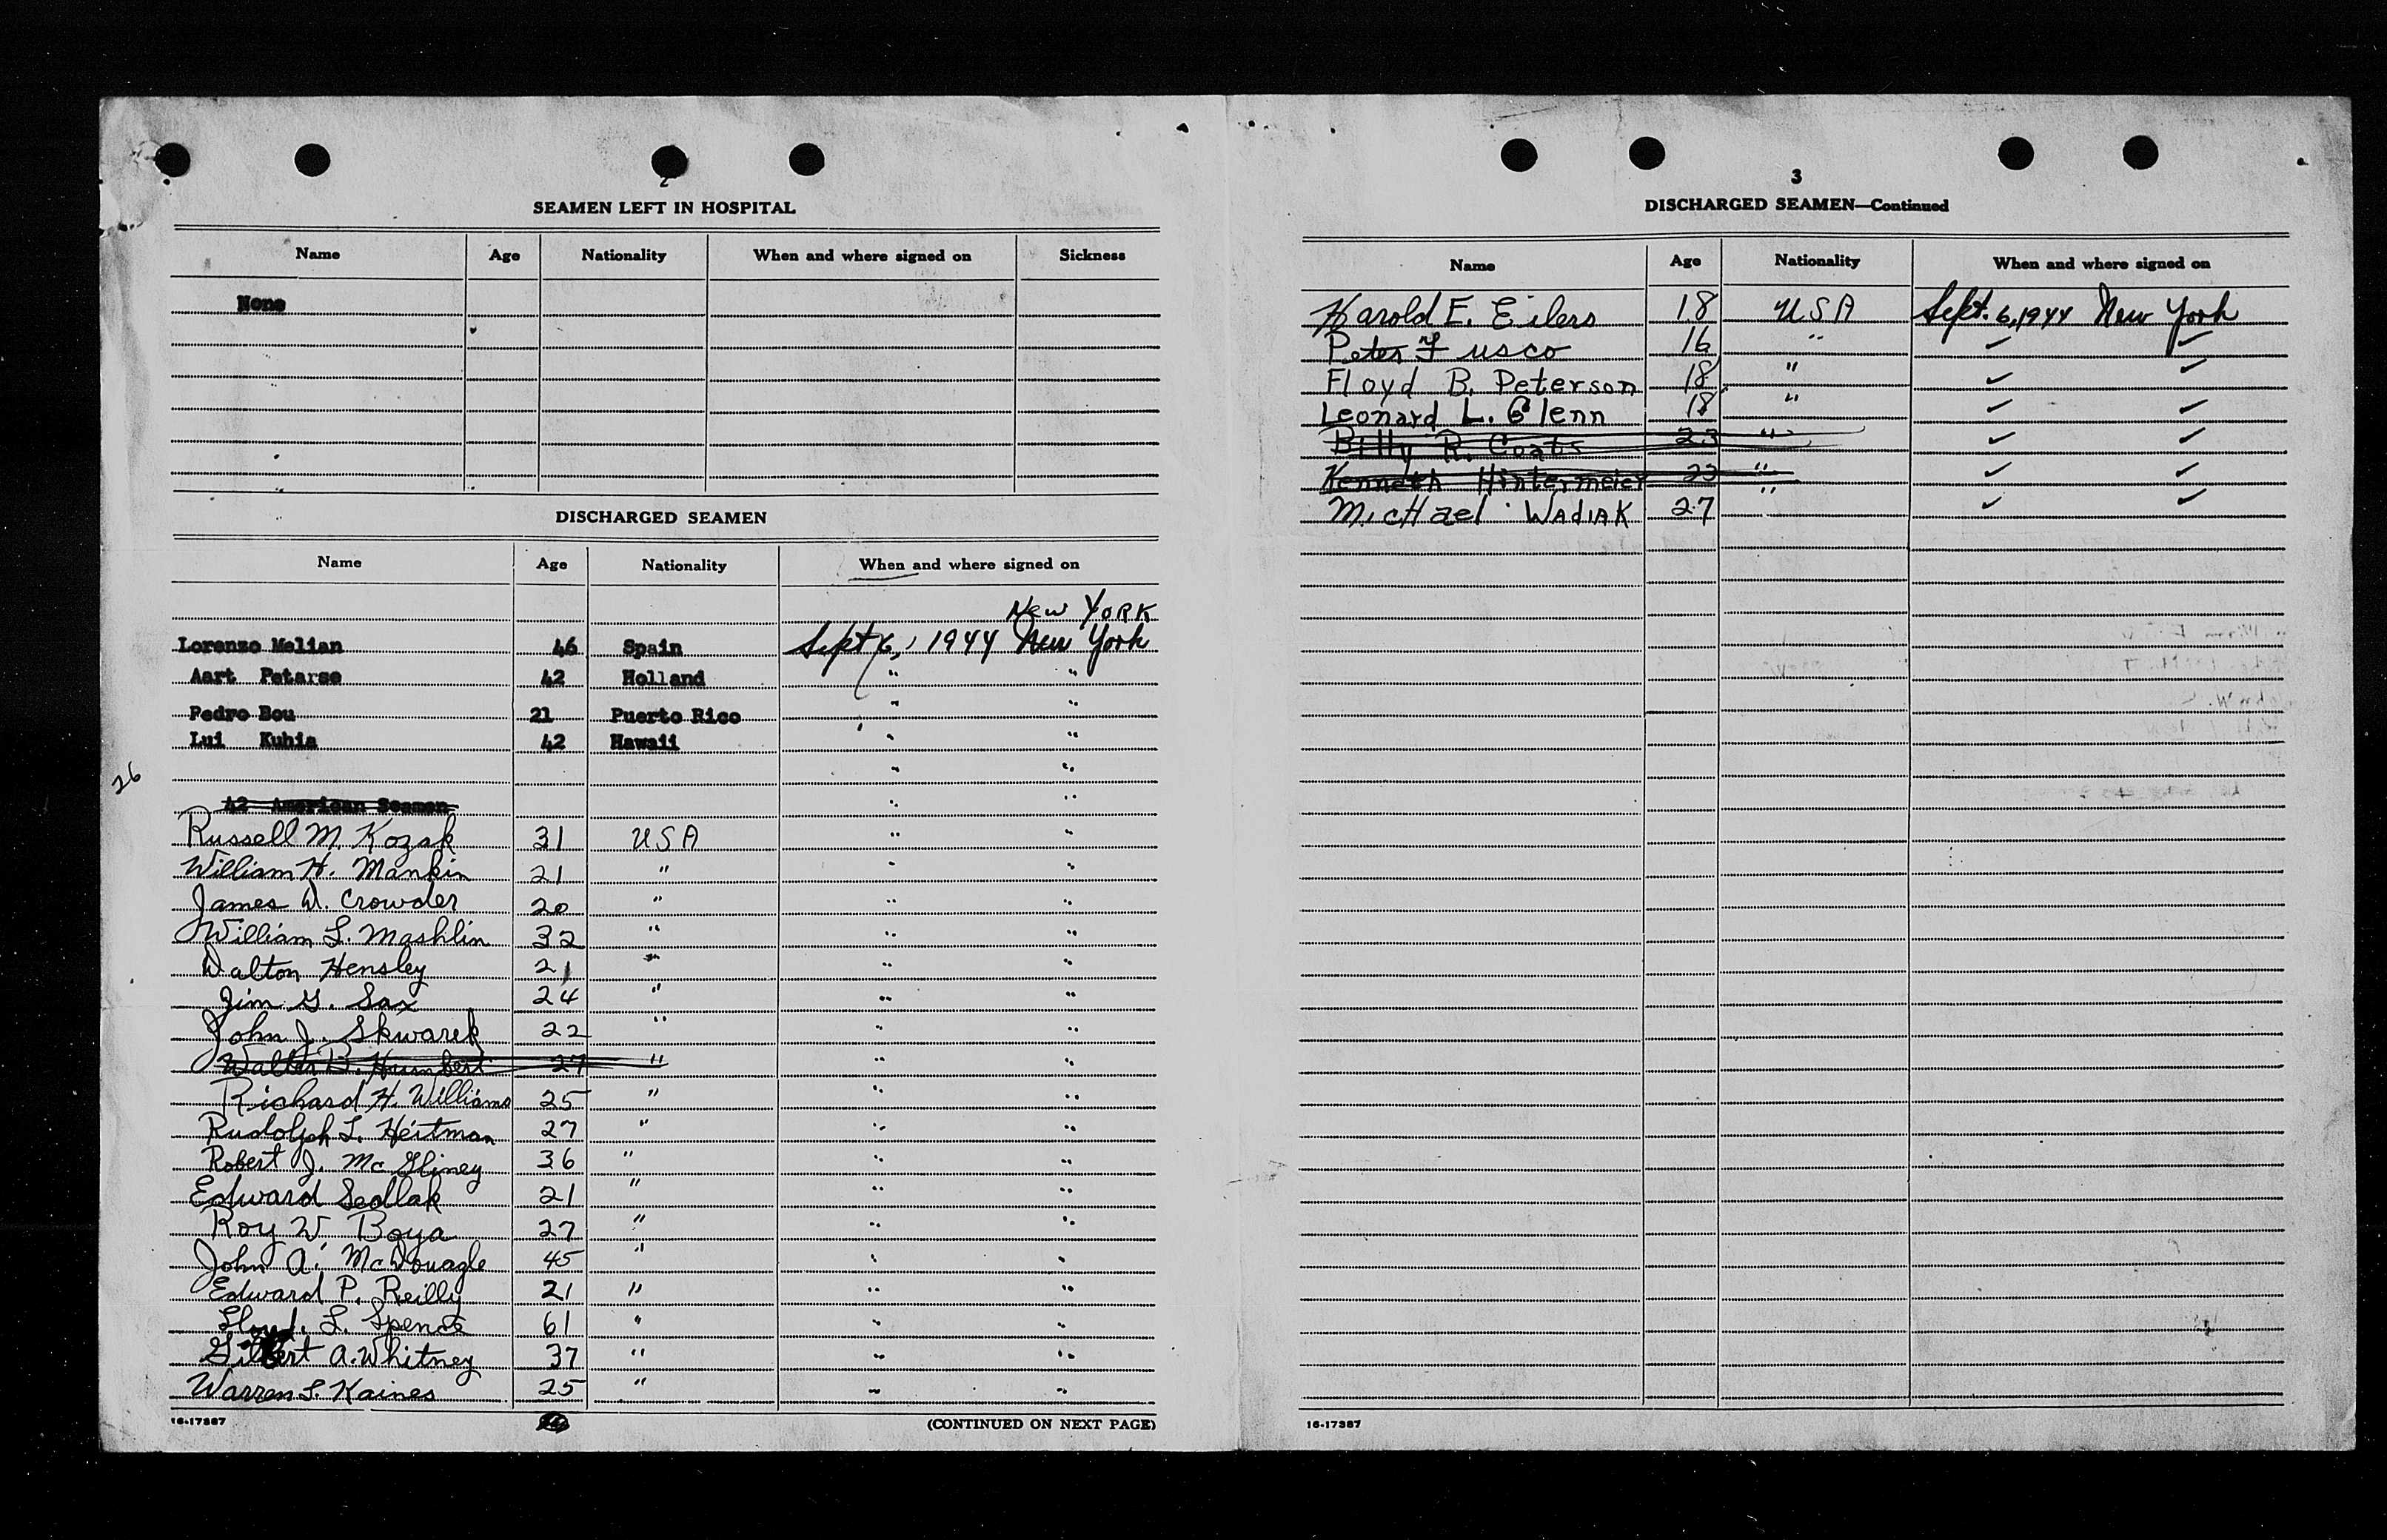 2
SEAMEN LEFT IN HOSPITAL
Name Age Nationality When and where signed on Sickness
None
DISCHARGED SEAMEN
Name Age Nationality When and where signed on
New YORK
Lorenzo Melian 46 Spain Sept 6, 1944 New York
Aart Petarse 42 Holland " "
Pedro Bou 21 Puerto Rico " "
Lui Kuhia 42 Hawaii " "
" "
26
42 American Seamen " "
Russell M. Kozak 31 USA " "
William H. Mankin 21 " " "
James W. Crowder 20 " " "
William L. Mashlin 32 " " "
Walton Hensley 21 " " "
Jim G. Sax 24 " " "
John J. Skwarek 22 " " "
Walter B. Humbert 27 " " "
Richard H. Williams 25 " " "
Rudolph L. Heitman 27 " " "
Robert J. McGliney 36 " " "
Edward Sedlak 21 " " "
Roy W. Boya 27 " " "
John A. McDonagle 45 " " "
Edward P. Reilly 21 " " "
Lloyd L. Spence 61 " " "
Gilbert A. Whitney 37 " " "
Warren L. Kaines 25 " " "
16-17387 (CONTINUED ON NEXT PAGE)
3
DISCHARGED SEAMEN—Continued
Name Age Nationality When and where signed on
Harold E. Eilers 18 USA Sept. 6, 1944 New York
Peter Fusco 16 " ✓ ✓
Floyd B. Peterson 18 " ✓ ✓
Leonard L. Glenn 18 " ✓ ✓
Billy R. Coats 23 " ✓ ✓
Kenneth Hintermeier 23 " ✓ ✓
Michael WADIAK 27 " ✓ ✓
16-17387